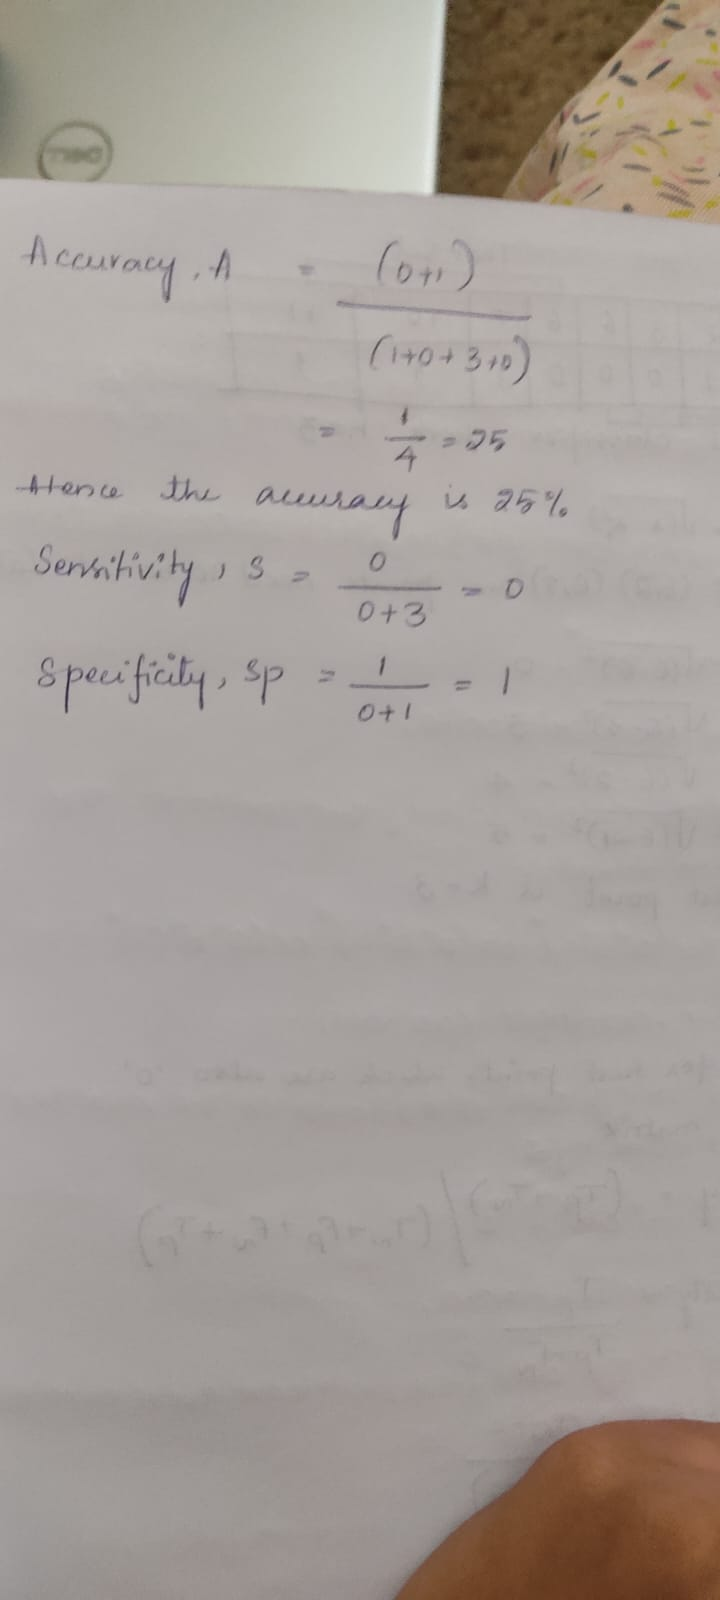 DELL
Accuracy, A = (0+1)
(1+0+3+0)
= 1/4 = 25
Hence the accuracy is 25%
Sensitivity, S = 0 / 0+3 = 0
Specificity, Sp = 1 / 0+1 = 1